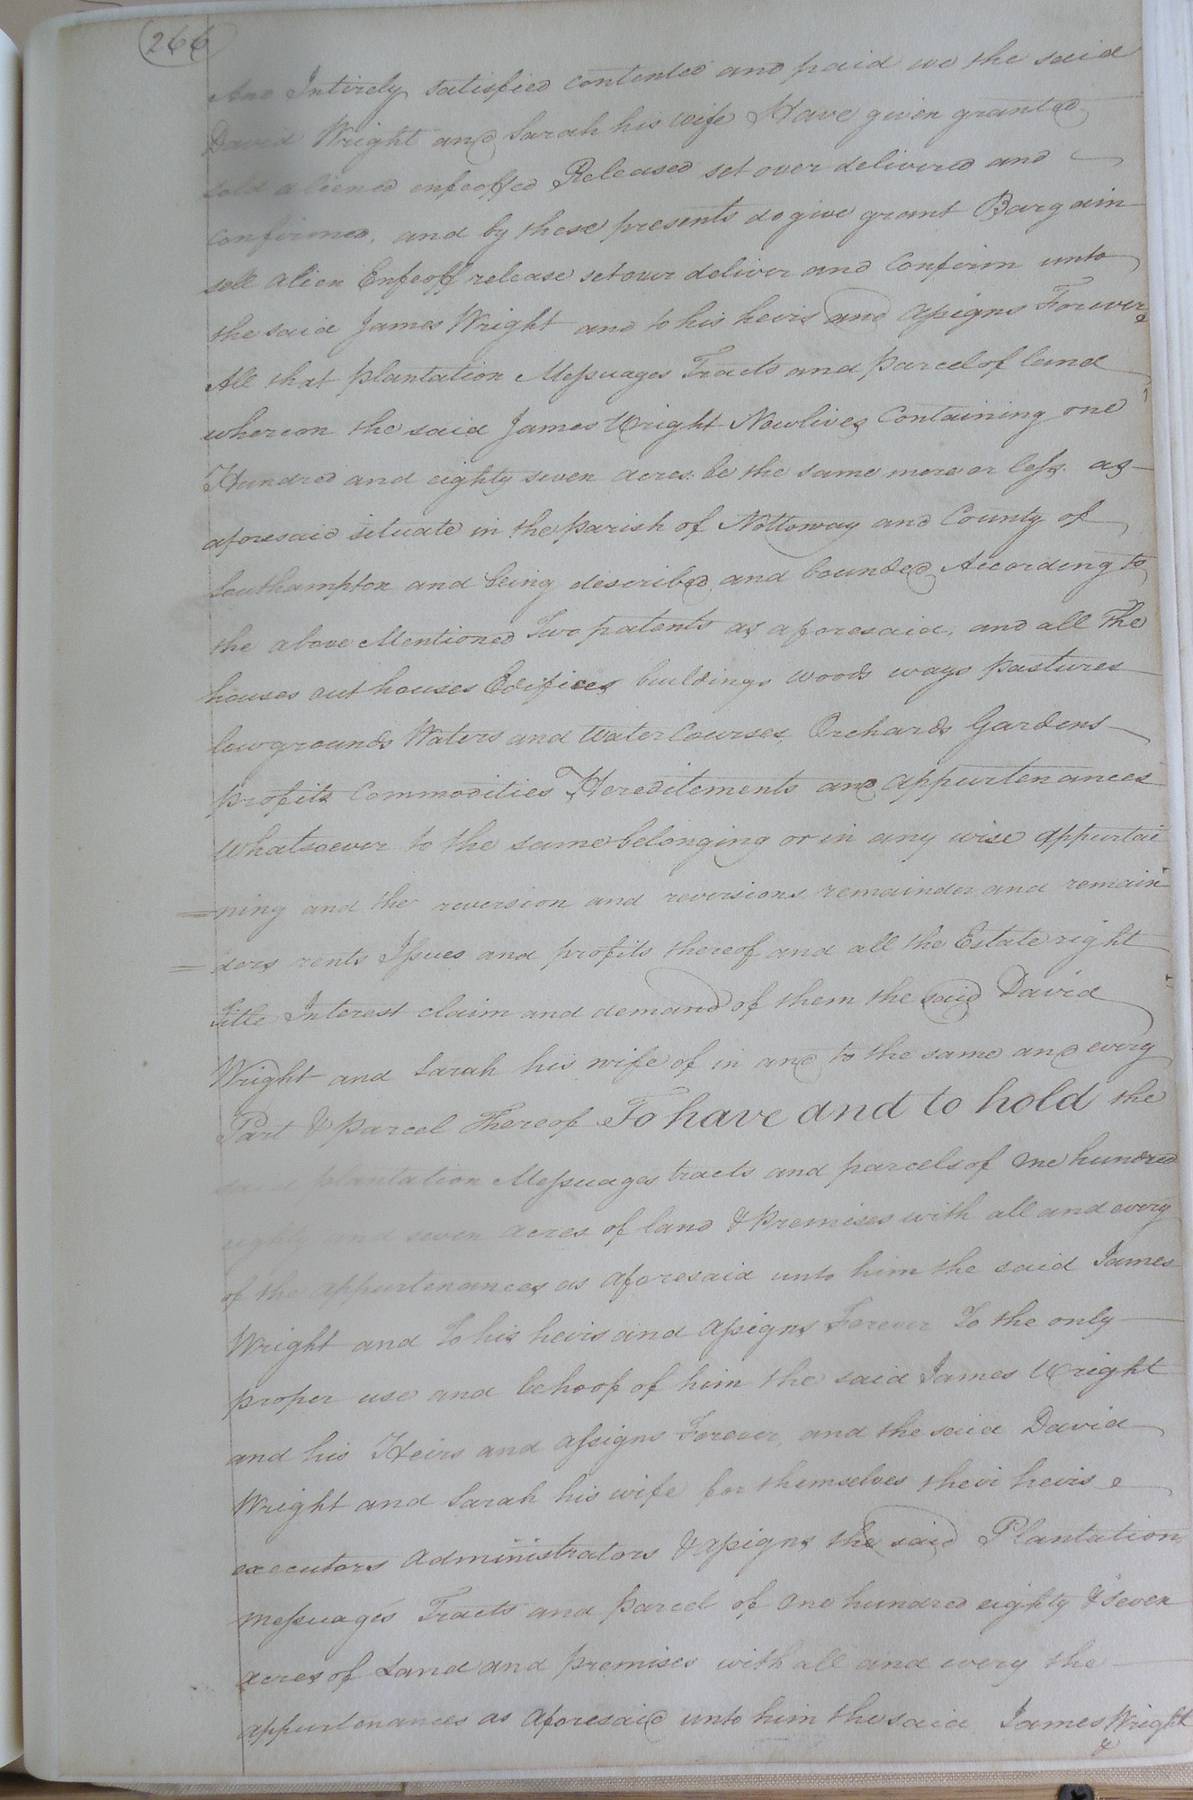 266
And Intirely satisfied contented and paid we the said
David Wright and Sarah his wife Have given granted
sold aliened enfeoffed Released set over delivered and
confirmed, and by these presents do give grant Bargain
sell alien Enfeoff release set over deliver and Confirm unto
the said James Wright and to his heirs and assigns Forever
All that plantation Messuages Tracts and parcel of land
whereon the said James Wright Now lives Containing one
Hundred and eighty seven acres be the same more or less as
aforesaid situate in the parish of Nottoway and County of
Southampton and being described and bounded According to
the above Mentioned Two patents as aforesaid, and all The
houses out houses Edifices buildings woods ways pastures
lowgrounds Waters and Water Courses Orchards Gardens
profits Commodities Hereditements and appurtenances
Whatsoever to the same belonging or in any wise appurtai
=ning and the reversion and reversions remainder and remain
=ders rents Issues and profits thereof and all the Estate right
title Interest claim and demand of them the said David
Wright and Sarah his wife of in and to the same and every
Part & parcel thereof To have and to hold the
said plantation Messuages tracts and parcels of one hundred
eighty and seven acres of land & Premises with all and every
of the appurtenances as aforesaid unto him the said James
Wright and to his heirs and assigns Forever To the only
proper use and behoof of him the said James Wright
and his Heirs and assigns Forever, and the said David
Wright and Sarah his wife for themselves their heirs
executors administrators & assigns the said Plantation
messuages Tracts and parcel of one hundred eighty & seven
acres of Land and premises with all and every the
appurtenances as aforesaid unto him the said James Wright
&